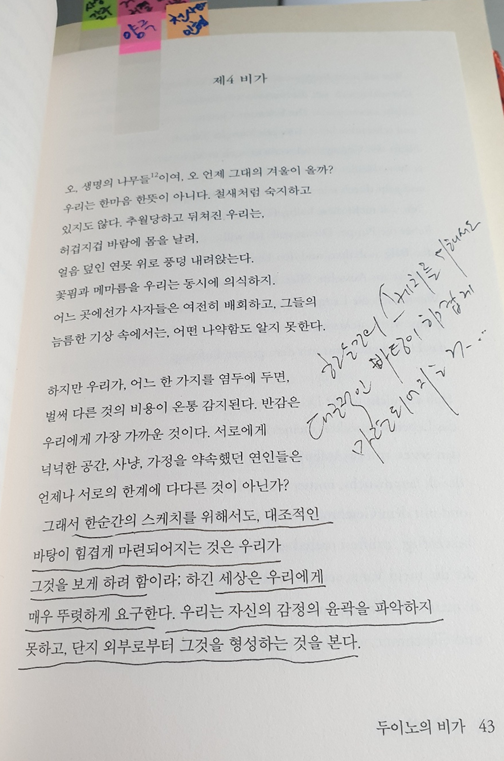 양극
천사와
인형
제4 비가
오, 생명의 나무들12이여, 오 언제 그대의 겨울이 올까?
우리는 한마음 한뜻이 아니다. 철새처럼 숙지하고
있지도 않다. 추월당하고 뒤쳐진 우리는,
허겁지겁 바람에 몸을 날려,
얼음 덮인 연못 위로 풍덩 내려앉는다.
꽃핌과 메마름을 우리는 동시에 의식하지.
어느 곳에선가 사자들은 여전히 배회하고, 그들의
늠름한 기상 속에서는, 어떤 나약함도 알지 못한다.
하지만 우리가, 어느 한 가지를 염두에 두면,
벌써 다른 것의 비용이 온통 감지된다. 반감은
우리에게 가장 가까운 것이다. 서로에게
넉넉한 공간, 사냥, 가정을 약속했던 연인들은
언제나 서로의 한계에 다다른 것이 아닌가?
그래서 한순간의 스케치를 위해서도, 대조적인
바탕이 힘겹게 마련되어지는 것은 우리가
그것을 보게 하려 함이라; 하긴 세상은 우리에게
매우 뚜렷하게 요구한다. 우리는 자신의 감정의 윤곽을 파악하지
못하고, 단지 외부로부터 그것을 형성하는 것을 본다.
한순간의 스케치를 위해서도
대조적인 바탕이 힘겹게
마련되어지는
두이노의 비가 43